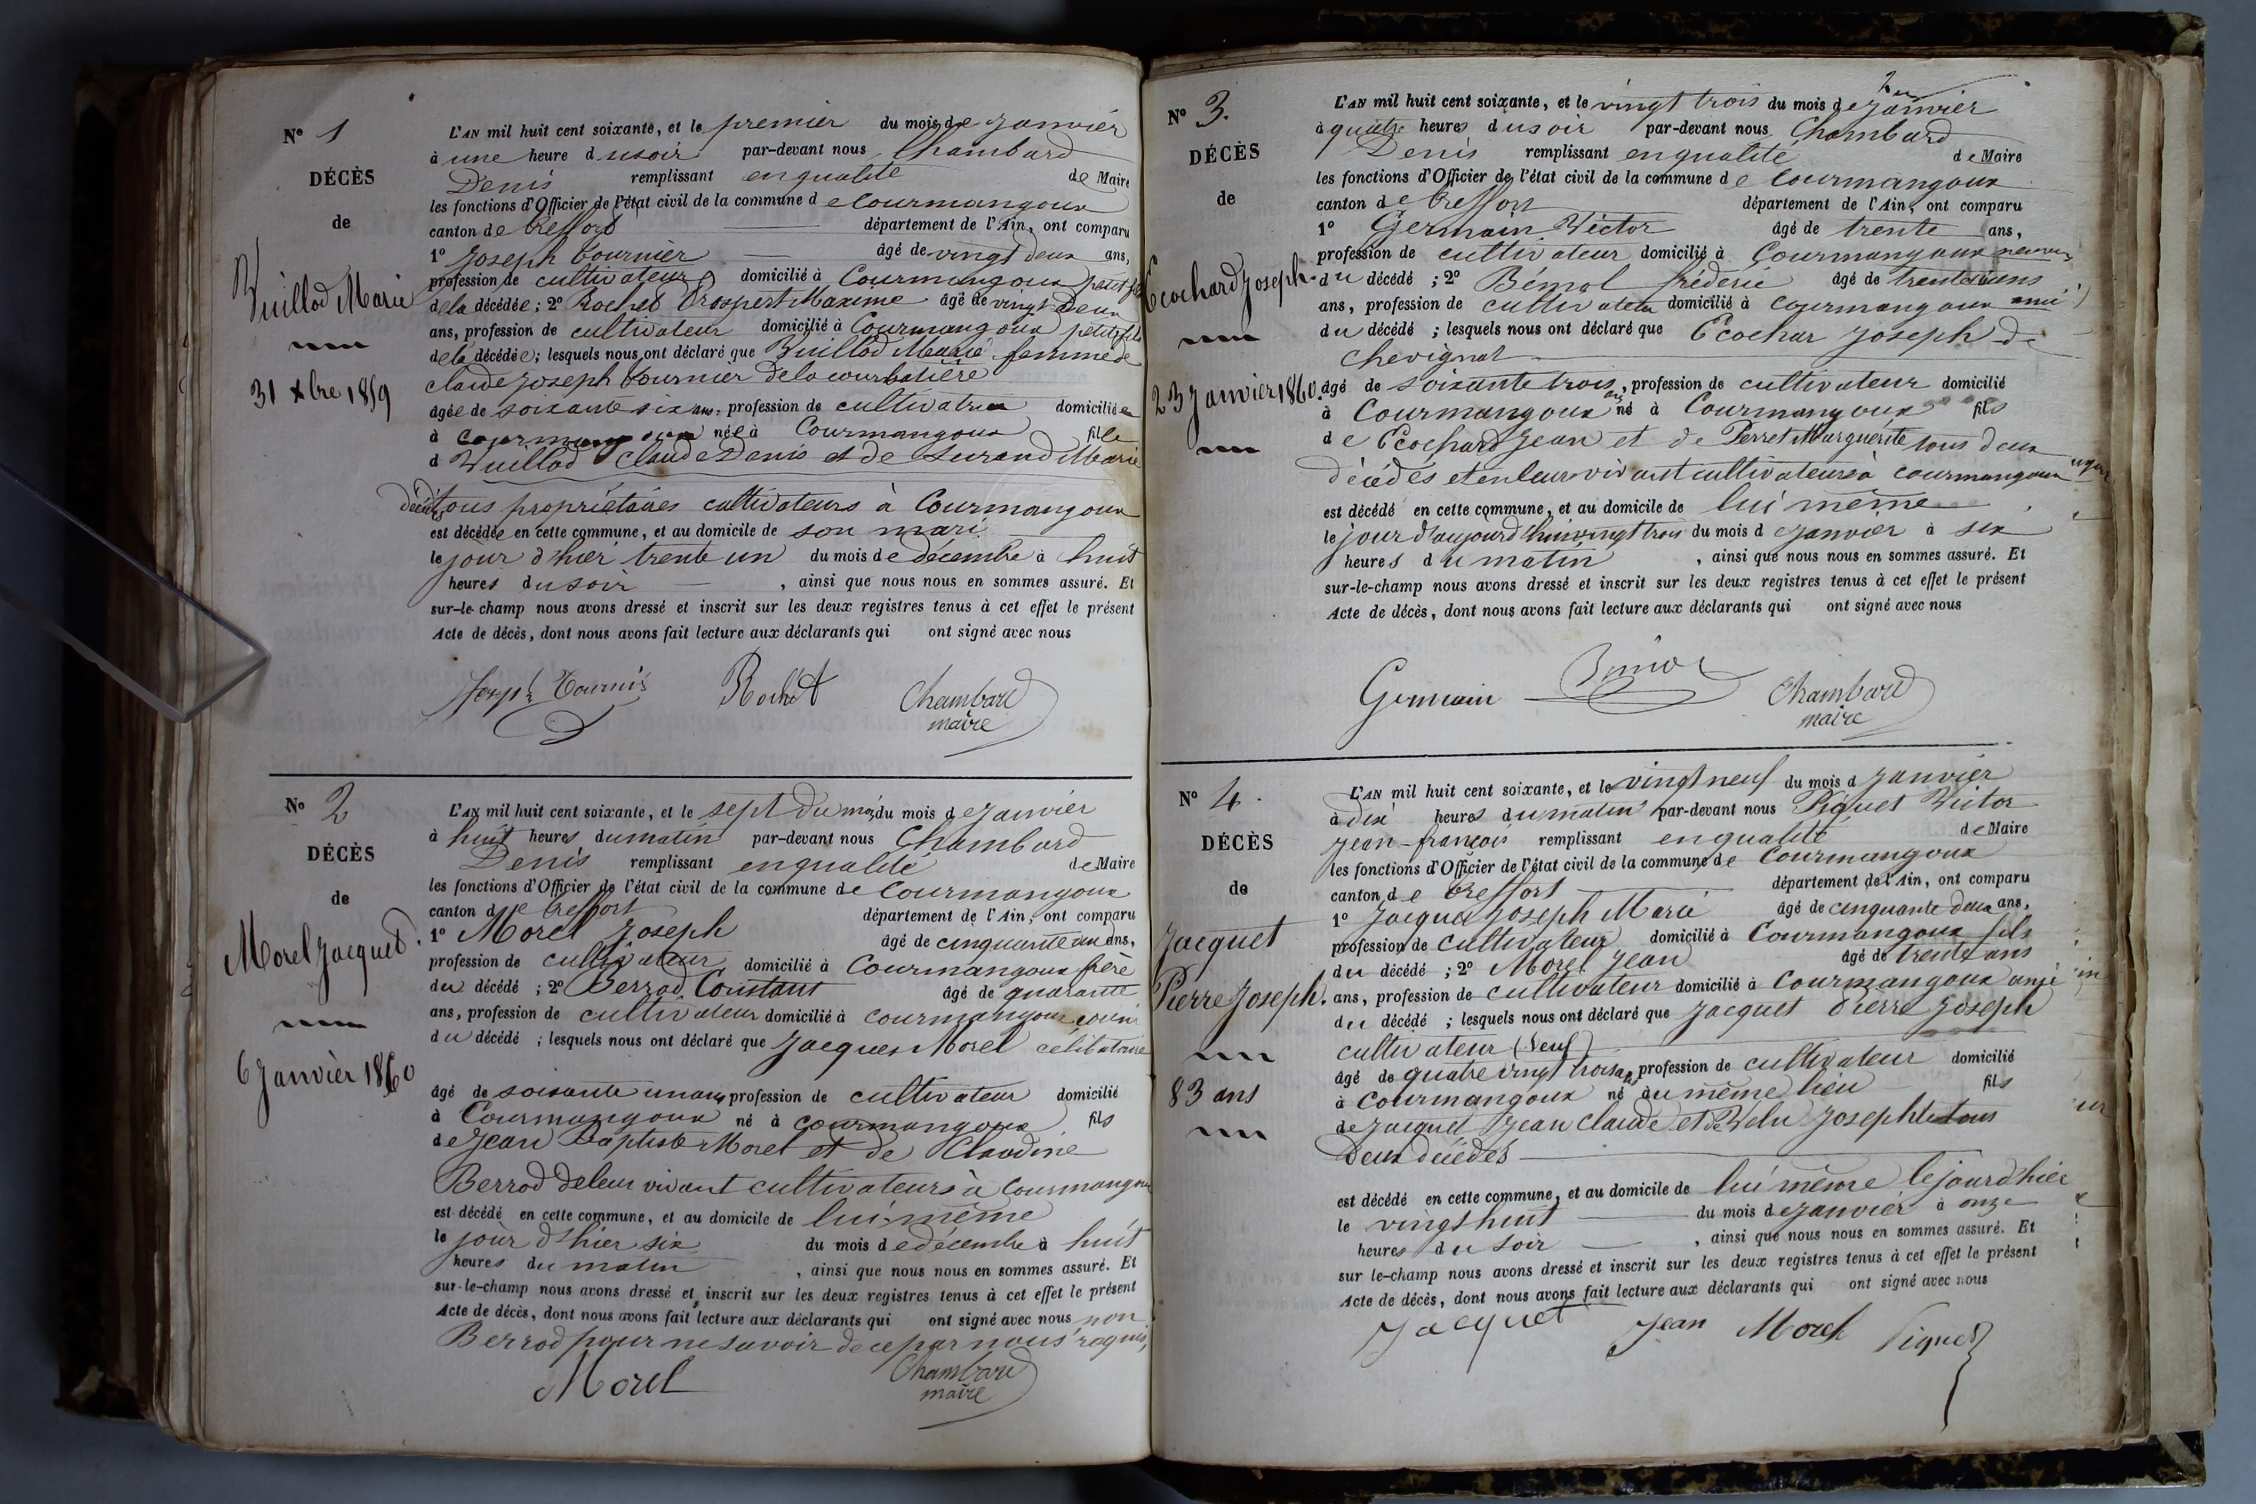 N° 1
DÉCÈS
de
Vuillod Marie
31 Xbre 1859
L'AN mil huit cent soixante, et le premier du mois de janvier
à une heure du soir par-devant nous Chambard
Denis remplissant en qualité de Maire
les fonctions d'Officier de l'état civil de la commune de Courmangoux
canton de Treffort département de l'Ain, ont comparu
1° Joseph Tournier âgé de vingt deux ans,
profession de cultivateur domicilié à Courmangoux petit fils
de la décédée ; 2° Rochet Prospert Maxime âgé de vingt deux
ans, profession de cultivateur domicilié à Courmangoux petit fils
de la décédée ; lesquels nous ont déclaré que Vuillod Marie femme de
Claude Joseph Tournier de la courbatière
âgée de soixante six ans, profession de cultivatrice domiciliée
à Courmangoux née à Courmangoux fille
d Vuillod Claude Denis et de Durand Marie
décédés tous propriétaires cultivateurs à Courmangoux
est décédée en cette commune, et au domicile de son mari
le jour d'hier trente un du mois de décembre à huit
heures du soir , ainsi que nous nous en sommes assuré. Et
sur-le-champ nous avons dressé et inscrit sur les deux registres tenus à cet effet le présent
Acte de décès, dont nous avons fait lecture aux déclarants qui ont signé avec nous
Joseph Tournier Rochet Chambard
maire
N° 2
DÉCÈS
de
Morel Jacques
6 Janvièr 1860
L'AN mil huit cent soixante, et le sept du mois du mois de janvièr
à huit heures du matin par-devant nous Chambard
Denis remplissant en qualité de Maire
les fonctions d'Officier de l'état civil de la commune de Courmangoux
canton de Treffort département de l'Ain, ont comparu
1° Morel Joseph âgé de cinquante ans,
profession de cultivateur domicilié à Courmangoux frère
du décédé ; 2° Berrod Constant âgé de quarante
ans, profession de cultivateur domicilié à courmangoux cousin
du décédé ; lesquels nous ont déclaré que Jacques Morel célibataire
âgé de soixante un ans, profession de cultivateur domicilié
à Courmangoux né à courmangoux fils
de Jean Baptiste Morel et de Claudine
Berrod de leur vivant cultivateurs à Courmangoux
est décédé en cette commune, et au domicile de lui-même
le jour d'hier six du mois de décembre à huit
heures du matin , ainsi que nous nous en sommes assuré. Et
sur-le-champ nous avons dressé et inscrit sur les deux registres tenus à cet effet le présent
Acte de décès, dont nous avons fait lecture aux déclarants qui ont signé avec nous non
Berrod pour ne savoir de ce par nous requis,
Morel Chambard
maire
N° 3.
DÉCÈS
de
Ecochard Joseph.
23 Janvier 1860.
L'AN mil huit cent soixante, et le vingt trois du mois de janvier
à quatre heures du soir par-devant nous Chambard
Denis remplissant en qualité de Maire
les fonctions d'Officier de l'état civil de la commune de Courmangoux
canton de Treffort département de l'Ain, ont comparu
1° Germain Victor âgé de trente ans,
profession de cultivateur domicilié à Courmangoux neveu
du décédé ; 2° Bémol frédéric âgé de trente
ans, profession de cultivateur domicilié à courmangoux ami
du décédé ; lesquels nous ont déclaré que Ecochar Joseph de
chevignat
âgé de soixante trois ans, profession de cultivateur domicilié
à Courmangoux né à Courmangoux fils
de Ecochard Jean et de Perret Marguerite tous deux
décédés et en leur vivant cultivateurs à courmangoux
est décédé en cette commune, et au domicile de lui même
le jour d'aujourd'hui vingt trois du mois de janvier à six
heures du matin , ainsi que nous nous en sommes assuré. Et
sur-le-champ nous avons dressé et inscrit sur les deux registres tenus à cet effet le présent
Acte de décès, dont nous avons fait lecture aux déclarants qui ont signé avec nous
Germain Bémol Chambard
maire
N° 4.
DÉCÈS
de
Jacquet
Pierre Joseph.
83 ans
L'AN mil huit cent soixante, et le vingt neuf du mois d Janvier
à dix heures du matin par-devant nous Piquet Victor
Jean-françois remplissant en qualité de Maire
les fonctions d'Officier de l'état civil de la commune de Courmangoux
canton de Treffort département de l'Ain, ont comparu
1° Jacquet Joseph Marie âgé de cinquante deux ans,
profession de cultivateur domicilié à Courmangoux fils
du décédé ; 2° Morel Jean âgé de trente ans
ans, profession de cultivateur domicilié à Courmangoux ami
du décédé ; lesquels nous ont déclaré que Jacquet Pierre Joseph
cultivateur (veuf)
âgé de quatre vingt trois ans, profession de cultivateur domicilié
à Courmangoux né au même lieu fils
de Jacquet Jean Claude et de Velu Josephte tous
deux décédés
est décédé en cette commune, et au domicile de lui même le jour d'hier
le vingt huit du mois de janvier à onze
heures du soir , ainsi que nous nous en sommes assuré. Et
sur le-champ nous avons dressé et inscrit sur les deux registres tenus à cet effet le présent
Acte de décès, dont nous avons fait lecture aux déclarants qui ont signé avec nous
Jacquet Jean Morel Piquet